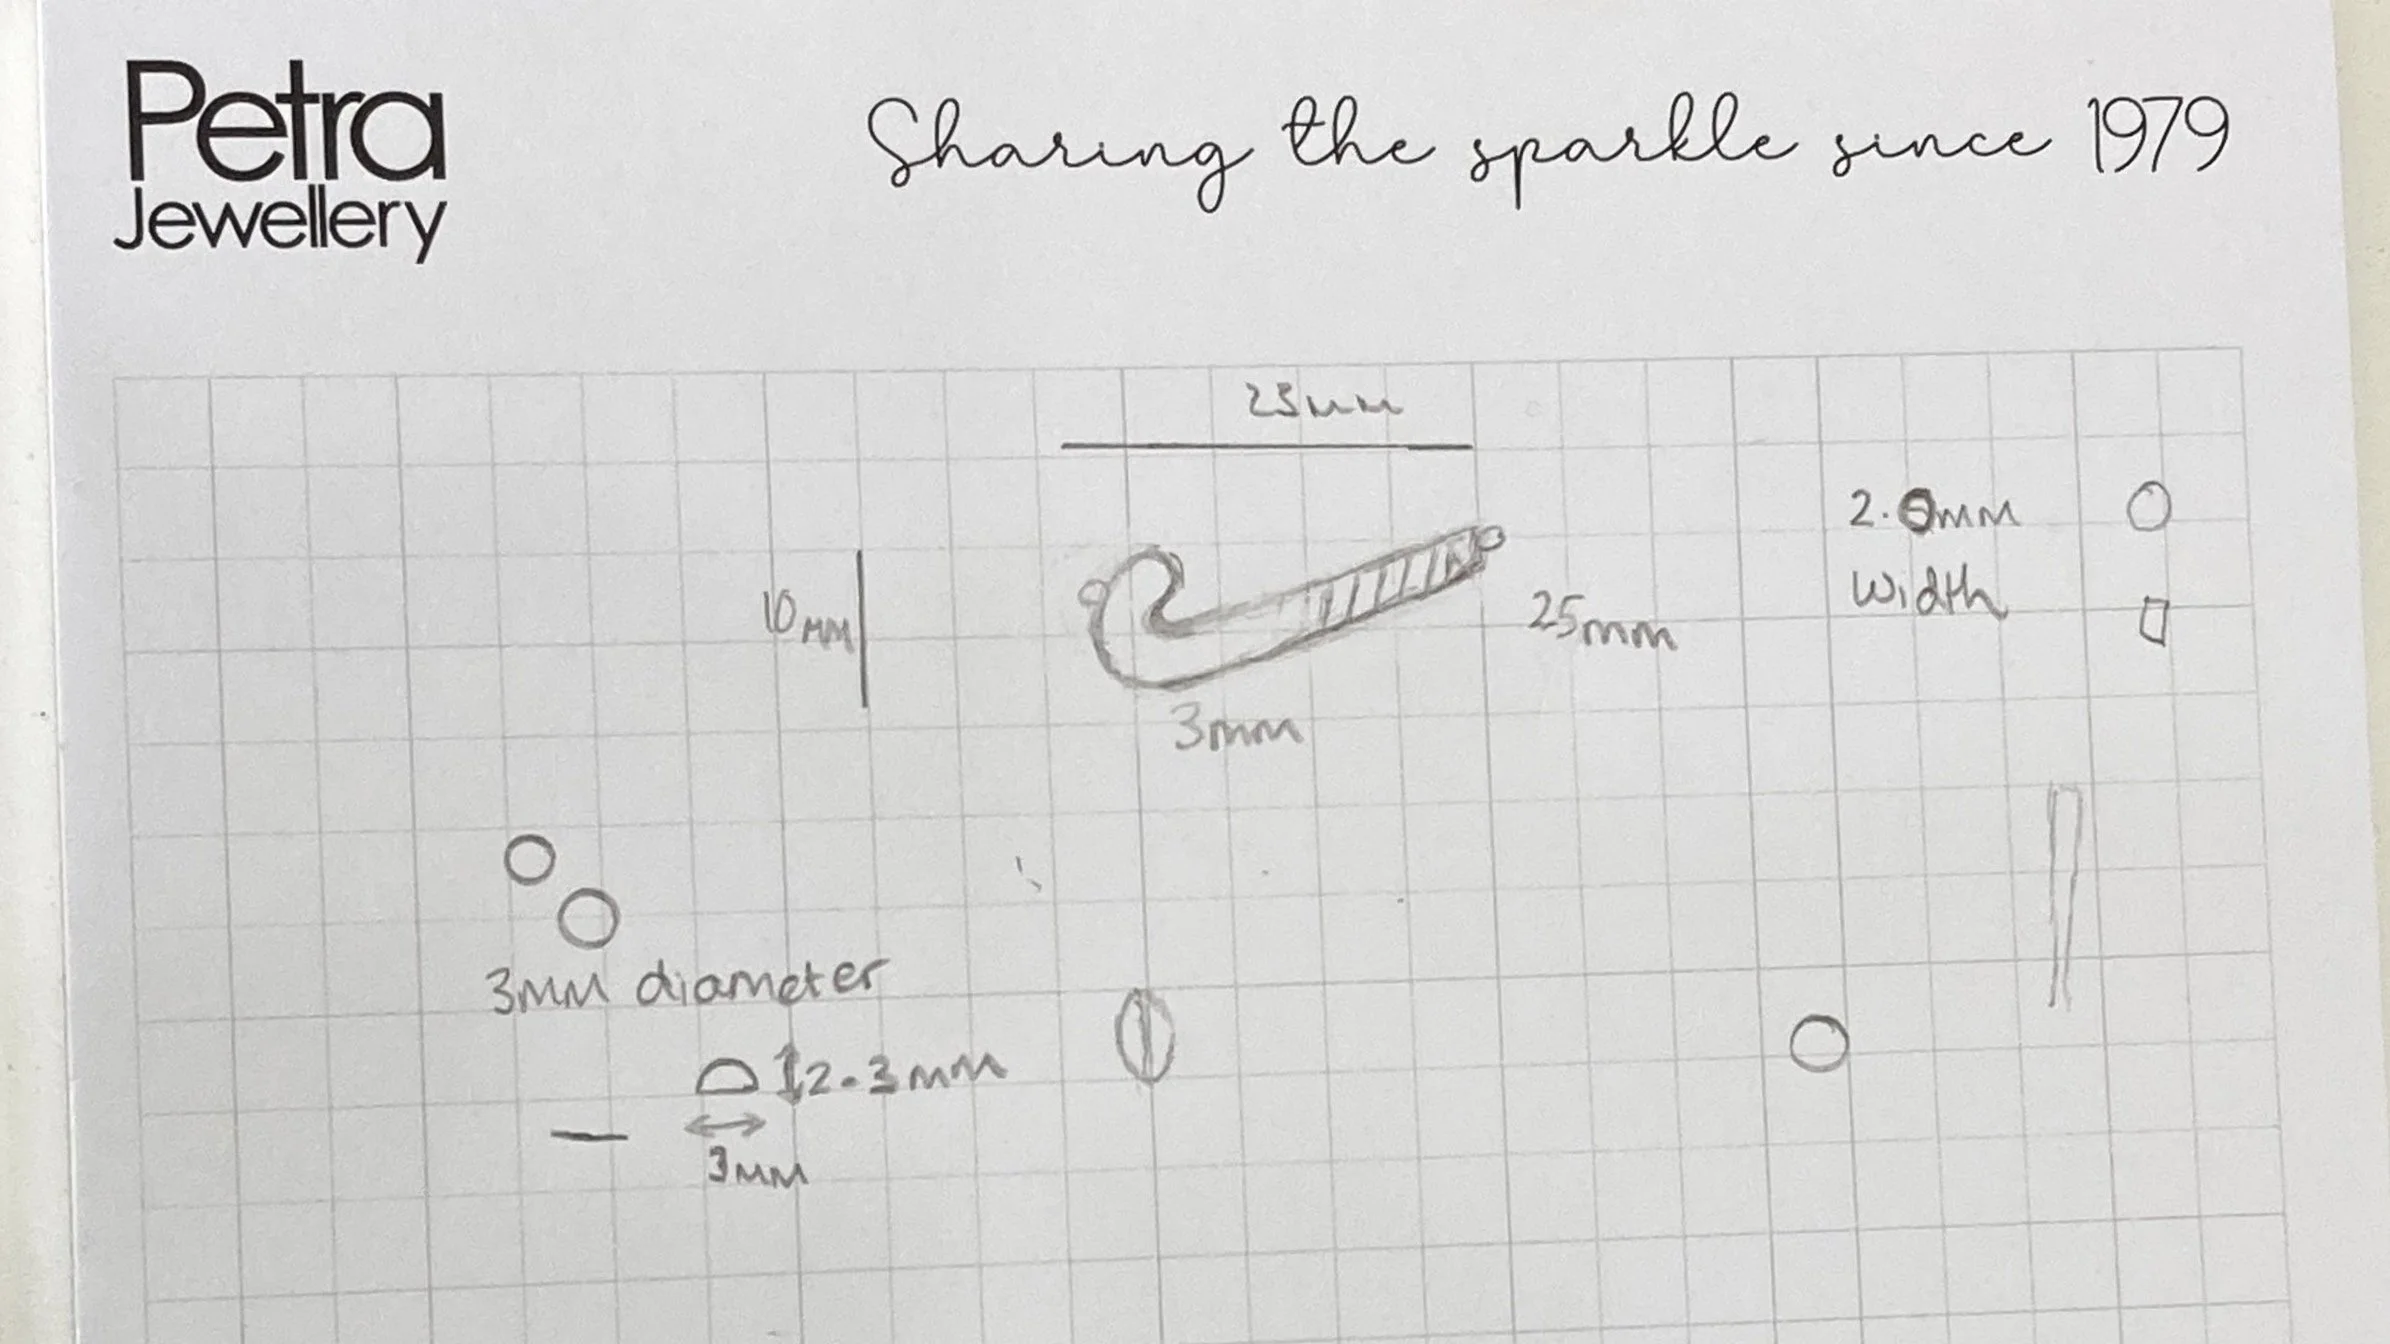 Petra
Jewellery
Sharing the sparkle since 1979
25mm
2.0mm
width
10mm
25mm
3mm
3mm diameter
2.3mm
3mm